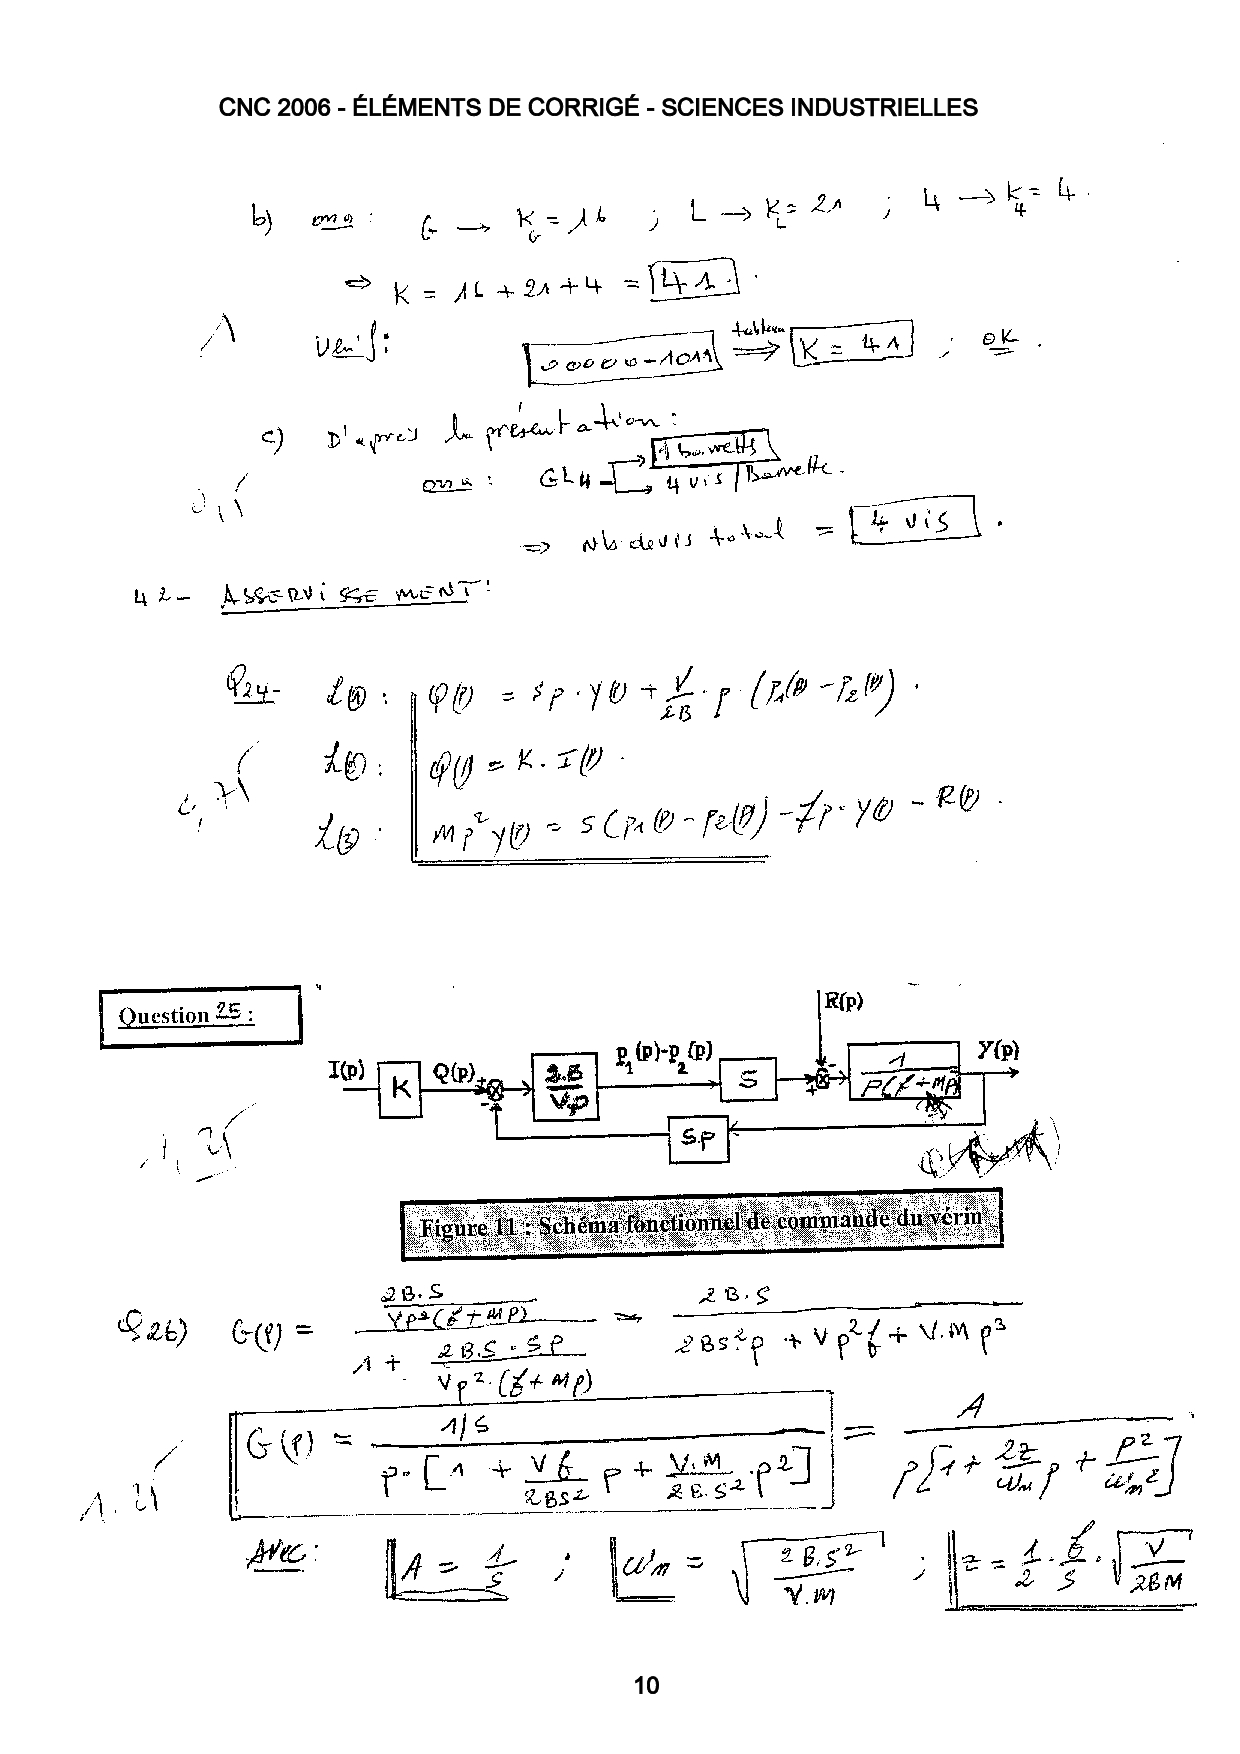 CNC 2006 - ÉLÉMENTS DE CORRIGÉ - SCIENCES INDUSTRIELLES
b) ona : G → K_G = 16 ; L → K_L = 21 ; 4 → K_4 = 4 .
⇒ K = 16 + 21 + 4 = 41 .
1
Verif : 00000-1011 tableau ⇒ K = 41 ; OK .
c) D'après la présentation :
ona : GL4 → 1 barrette
→ 4 vis / Barrette .
0,5
⇒ Nb de vis total = 4 vis .
42 - ASSERVISSEMENT :
Q24- L(1) : Q(p) = S p . Y(p) + V/2B . p (P1(p) - P2(p)) .
L(2) : Q(p) = K . I(p) .
0,75
L(3) : M p² Y(p) = S (P1(p) - P2(p)) - f p . Y(p) - R(p) .
Question 25 :
R(p)
I(p) K Q(p) + - 2.B/Vp p1(p)-p2(p) S + - 1/p(f+Mp) Y(p)
S.p
1,25
Figure 11 : Schéma fonctionnel de commande du vérin
Q26) G(p) = (2B.S / Vp²(f+Mp)) / (1 + 2B.S . Sp / Vp².(f+Mp)) = 2B.S / (2BS²p + Vp²f + V.M p³)
G(p) = 1/S / p.[1 + Vf/2BS² p + V.M/2B.S² . p²] = A / p[1 + 2z/ωn p + p²/ωn²]
1,25
AVEC : A = 1/S ; ωn = √(2B.S² / V.M) ; z = 1/2 . f/S . √(V / 2BM)
10